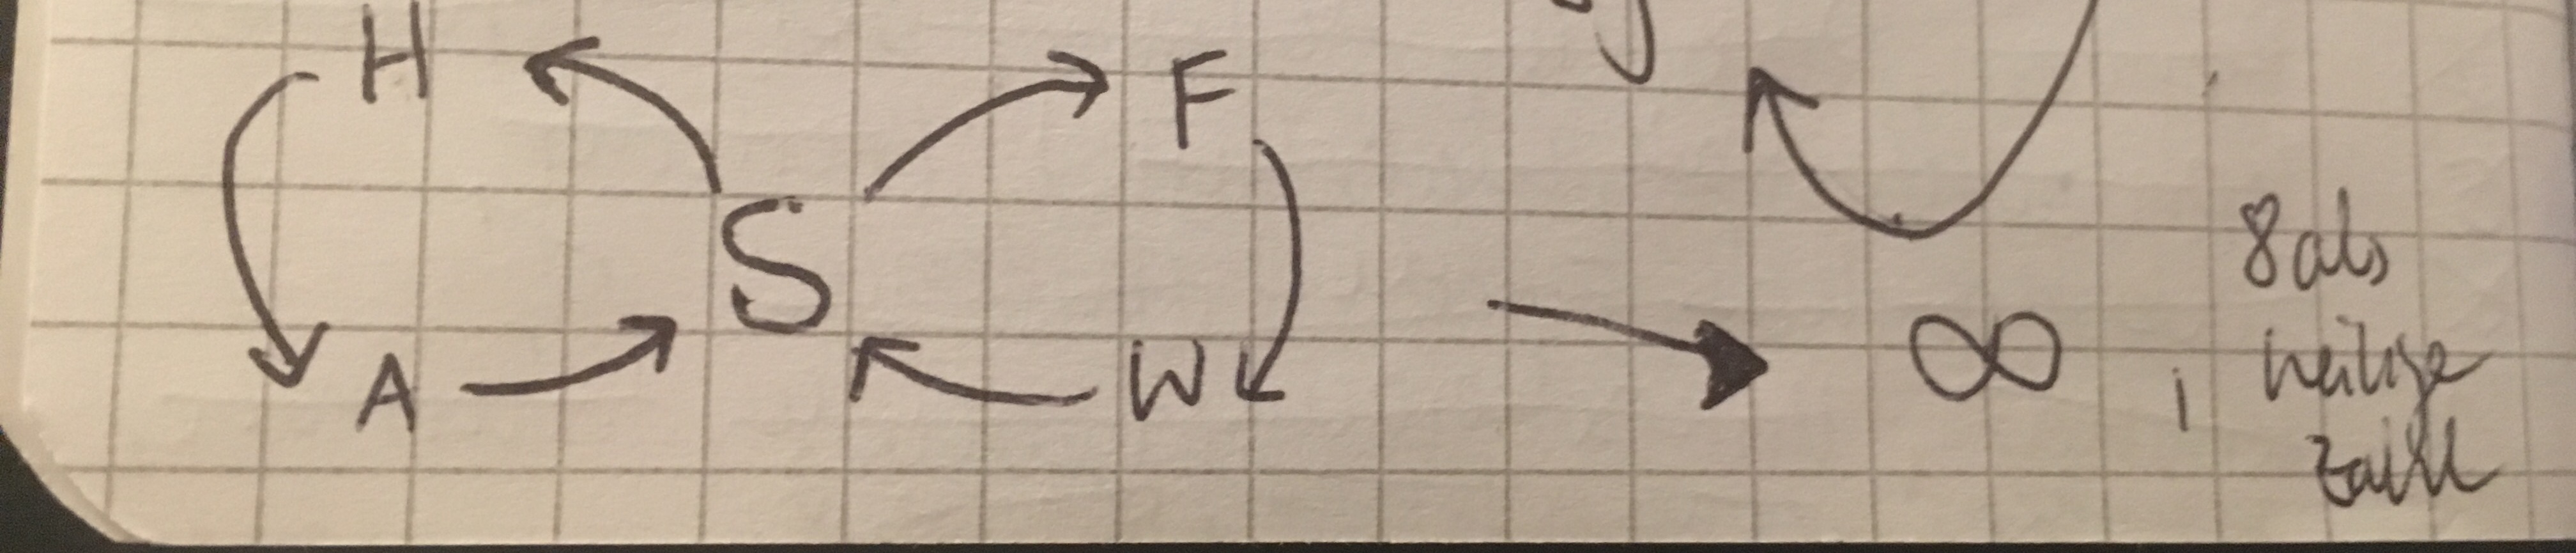 H F
S
A W
∞ , 8 als
heilige
Zahl